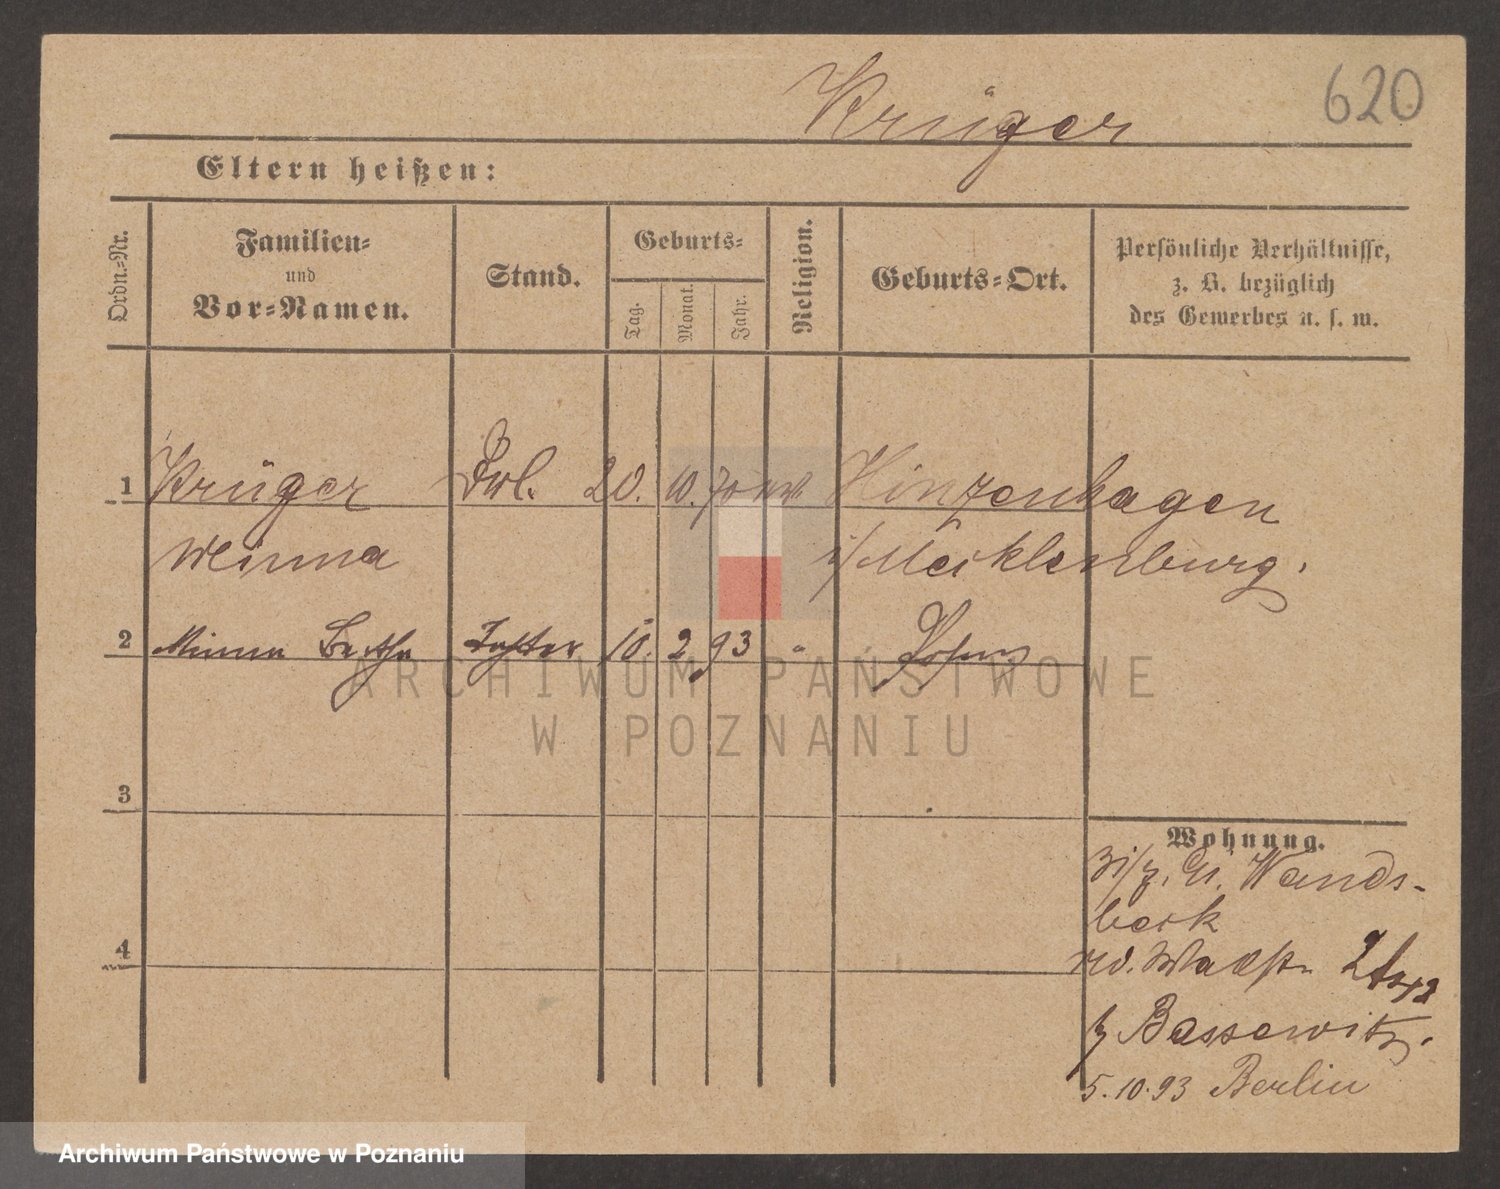 Krüger
620
Eltern heißen:
Ordn.-Nr.
Familien-
und
Vor-Namen.
Stand.
Geburts-
Tag.
Monat.
Jahr.
Religion.
Geburts-Ort.
Persönliche Verhältnisse,
z. B. bezüglich
des Gewerbes u. s. w.
1 Krüger Frl. 20. 10. 70 Hinzenhagen
Minna i/Mecklenburg.
2 Minna Bertha Tochter 10. 2 93 " Posen
3
4
Wohnung.
Wands-
beck
Bassewitz.
5.10.93 Berlin
ARCHIWUM PAŃSTWOWE
W POZNANIU
Archiwum Państwowe w Poznaniu